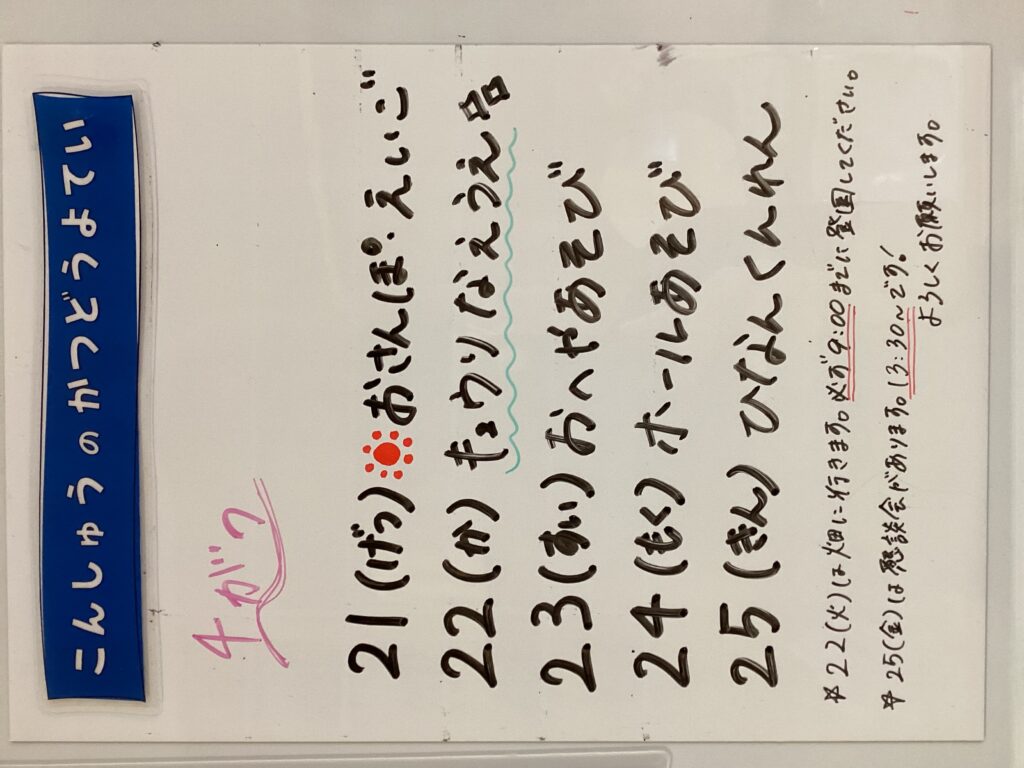 こんしゅうのかつどうよてい
4がつ
21(げつ)おさんぽ・えいご
22(か)キュウリなえうえ
23(すい)おへやあそび
24(もく)ホールあそび
25(きん)ひなんくんれん
※22(火)は畑に行きます。必ず9:00までに登園してください。
※25(金)は懇談会があります。13:30〜です!
よろしくお願いします。